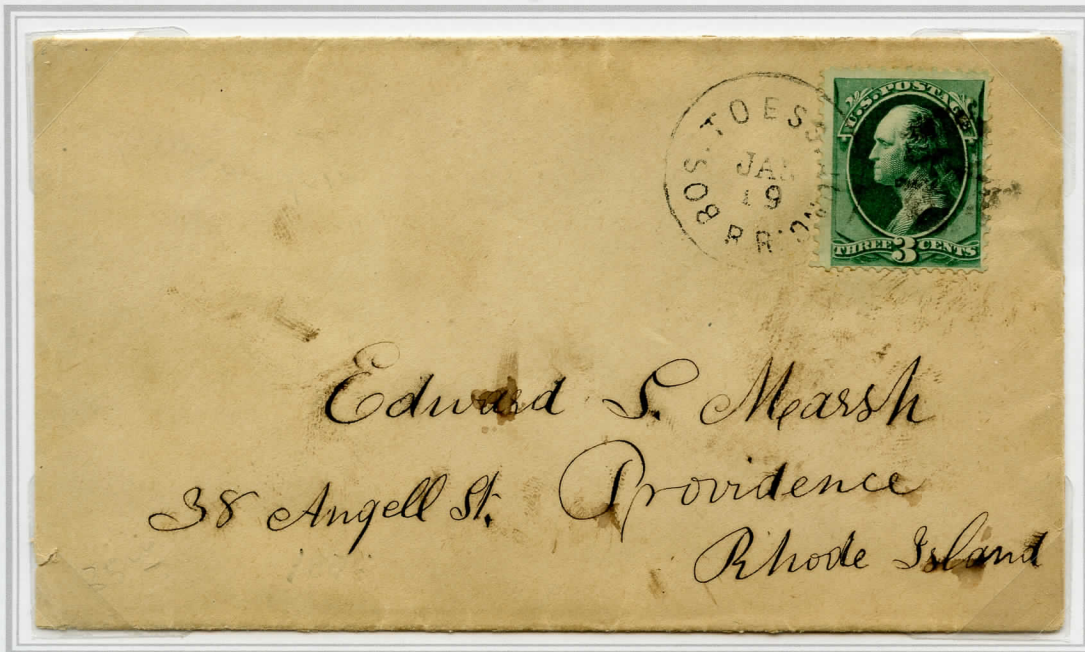 BOS. TO ESS.
JAN
19
R.R.
U.S. POSTAGE
THREE 3 CENTS
Edward S. Marsh
38 Angell St. Providence
Rhode Island